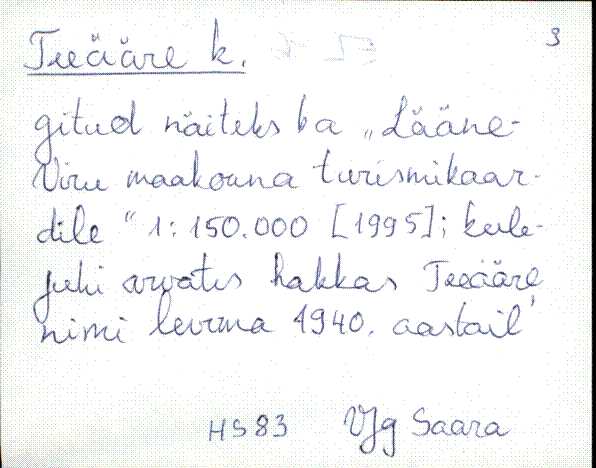 Teeääre k. 3
gitud näiteks ka „Lääne-
Viru maakonna turismikaar-
dile" 1:150.000 [1995]; küla-
juhi arvates hakkas Teeääre
nimi levima 1940. aastail'
HS83 VJg Saara